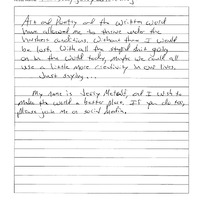 Art and Poetry and the Written Word
have allowed me to thrive under the
harshest conditions. Without them I would
be lost. With all the stupid shit going
on in the world today, Maybe we could all
use a little more creativity in our lives.
Just saying...
My name is Metcalf, and I wish to
make the world a better place. If you do too,
please join me on social media.